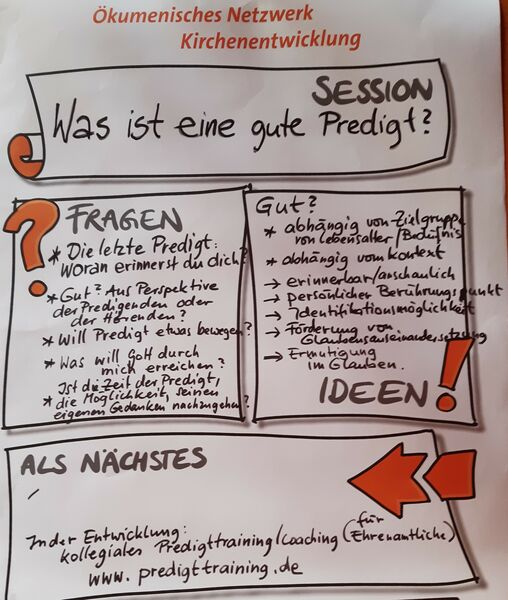 Ökumenisches Netzwerk
Kirchenentwicklung
SESSION
Was ist eine gute Predigt?
FRAGEN
* Die letzte Predigt:
Woran erinnerst du dich?
* Gut? Aus Perspektive
der Predigenden oder
der Hörenden?
* Will Predigt etwas bewegen?
* Was will Gott durch
mich erreichen?
Ist die Zeit der Predigt,
* die Möglichkeit, seinen
eigenen Gedanken nachzugehen?
Gut?
* abhängig von Zielgruppe
von Lebensalter/Bedürfnis
* abhängig vom Kontext
→ erinnerbar/anschaulich
→ persönlicher Berührungspunkt
→ Identifikationsmöglichkeit
→ Förderung von
Glaubensauseinandersetzung
→ Ermutigung
im Glauben.
IDEEN
ALS NÄCHSTES
In der Entwicklung:
kollegiales Predigttraining/Coaching (für
Ehrenamtliche)
www.predigttraining.de